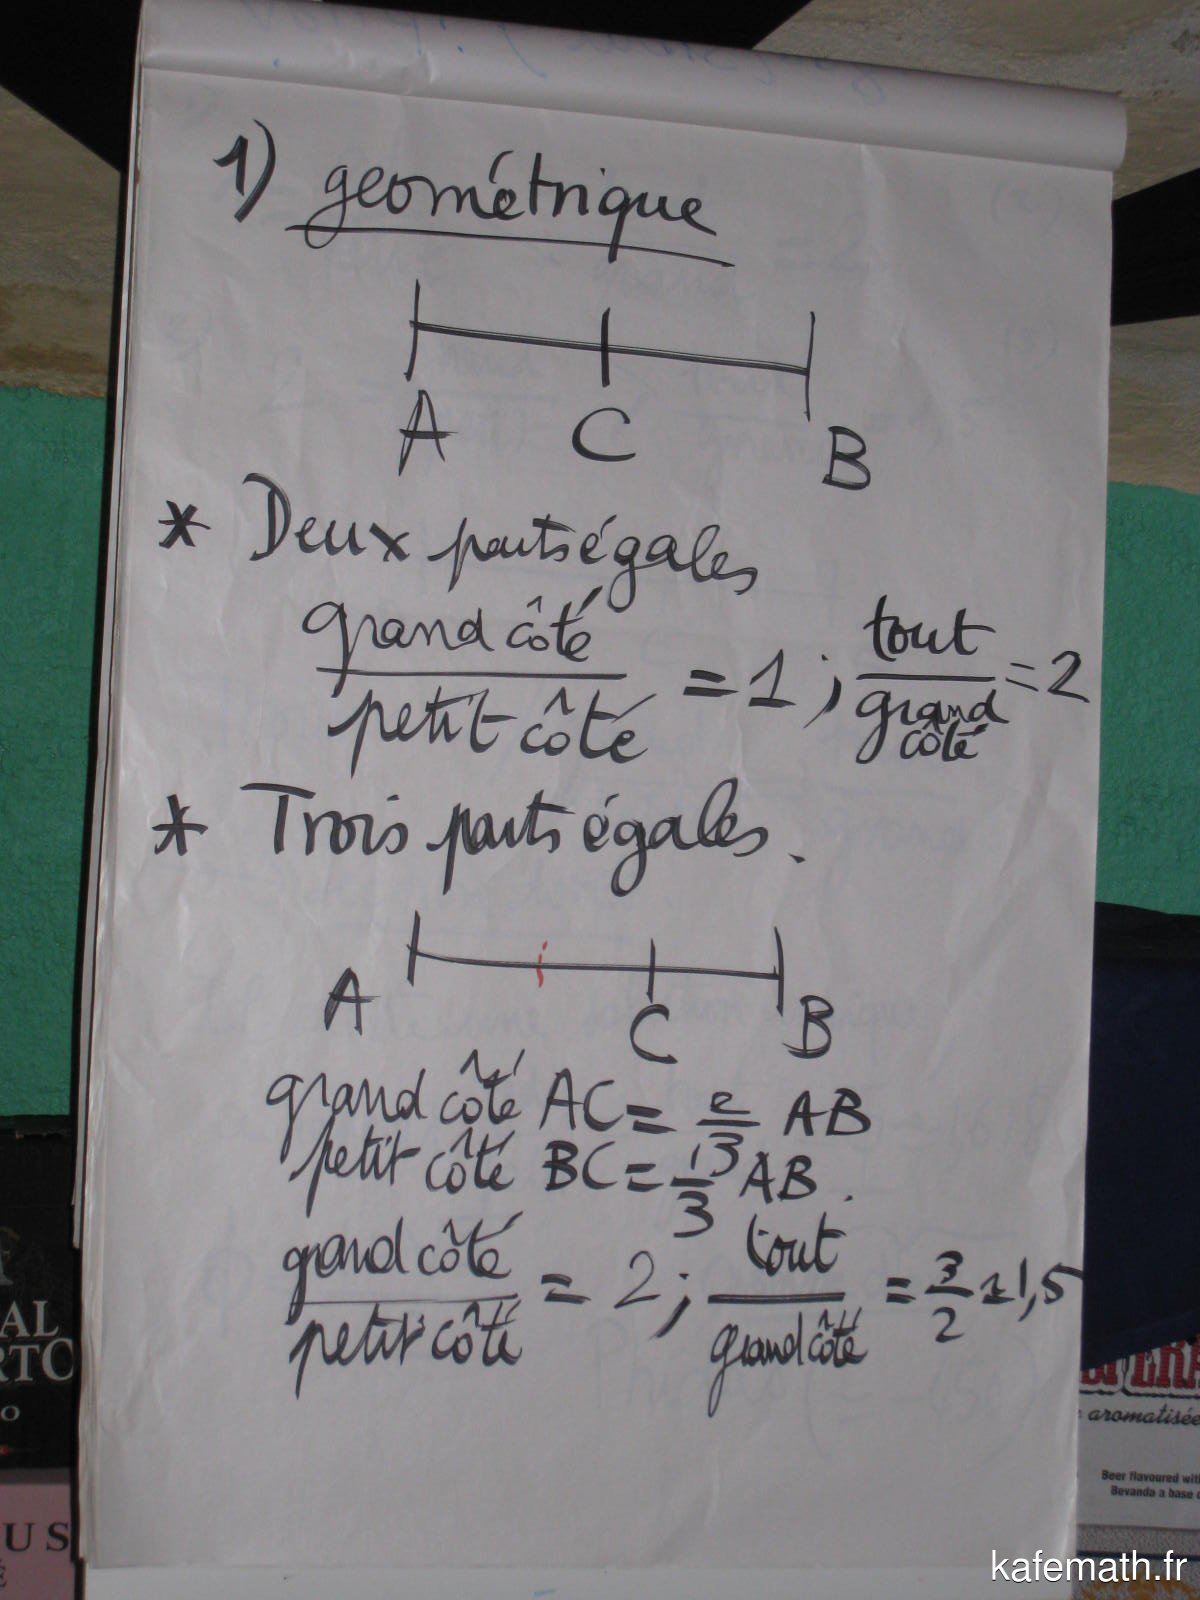 1) geométrique
A C B
* Deux parts égales
grand côté / petit côté = 1 ; tout / grand côté = 2
* Trois parts égales.
A C B
grand côté AC = 2/3 AB
petit côté BC = 1/3 AB.
grand côté / petit côté = 2 ; tout / grand côté = 3/2 = 1,5
AL
RTO
O
US
É
aromatisée
Beer flavoured wit
Bevanda a base
kafemath.fr